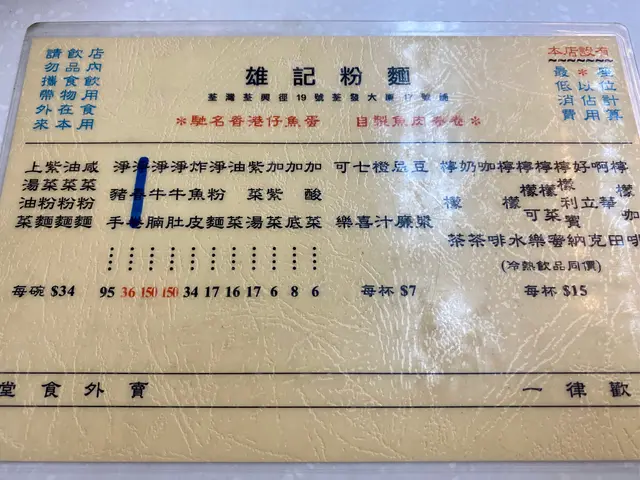 請勿攜帶外來
飲品食物在本
店內飲用食用
雄記粉麵
荃灣荃興徑19號荃發大廈17號舖
*馳名香港仔魚蛋
自製魚皮
本店設有
最低消費
*以佔用
位計算
上湯油菜
紫菜粉麵
油菜粉麵
咸菜粉麵
每碗 $34
淨豬手 95
36
淨牛腩 150
淨牛肚 150
炸魚皮 34
淨粉麵 17
油菜 16
紫菜湯 17
加紫菜 6
加底 8
加酸菜 6
可樂
七喜
橙汁
忌廉
豆漿
每杯 $7
檸檬茶
奶茶
咖啡
檸檬水
檸檬可樂
檸檬利賓納
好立克
啊華田
檸檬咖啡
(冷熱飲品同價)
每杯 $15
堂食外賣
一律歡